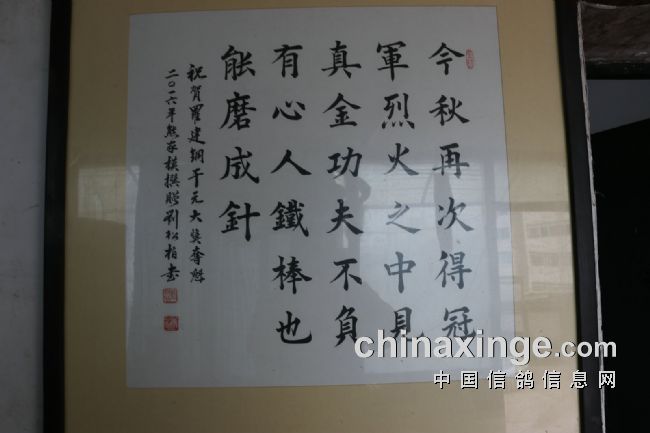 今秋再次得冠
軍烈火之中見
真金功夫不負
有心人鐵棒也
能磨成針
祝賀羅建鋼千元大奨奪魁
二〇一六年熊家模撰聯劉松柏書
chinaxinge.com
中国信鸽信息网